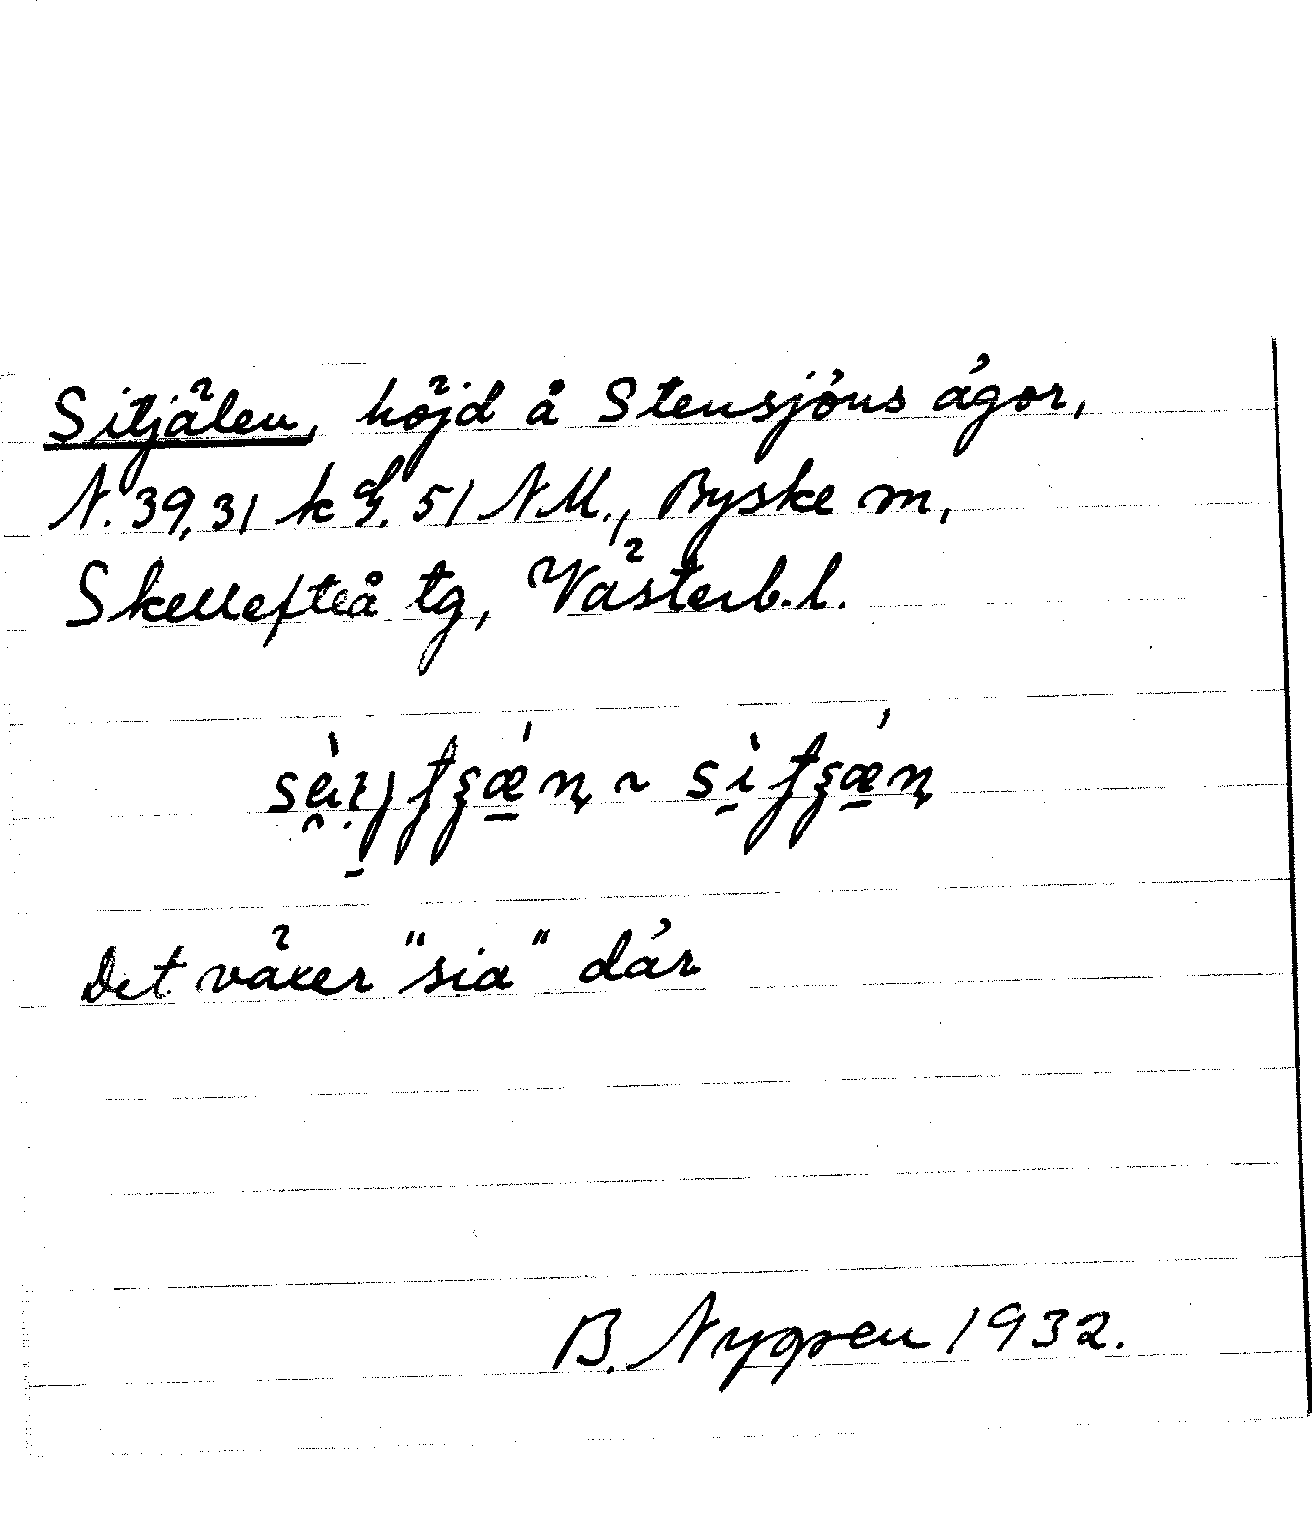 Sitjälen, höjd å Stensjöns ägor,
N. 39,31 k G. 51 NM., Byske sn,
Skellefteå tg, Västerb.l.
Det växer "sia" där
B. Nygren 1932.